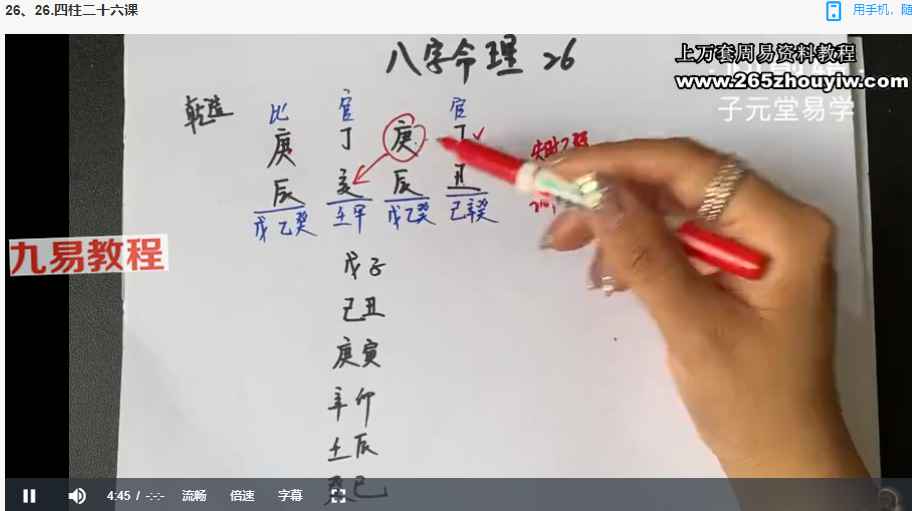 26、26.四柱二十六课
用手机，随
八字命理 26
上万套周易资料教程
www.265zhouyiw.com
子元堂易学
乾造
比 官 官
庚 丁 庚 丁
辰 亥 辰 丑
戊乙癸 壬甲 戊乙癸 己辛癸
九易教程
戊子
己丑
庚寅
辛卯
壬辰
癸巳
4:45 / -:-:- 流畅 倍速 字幕